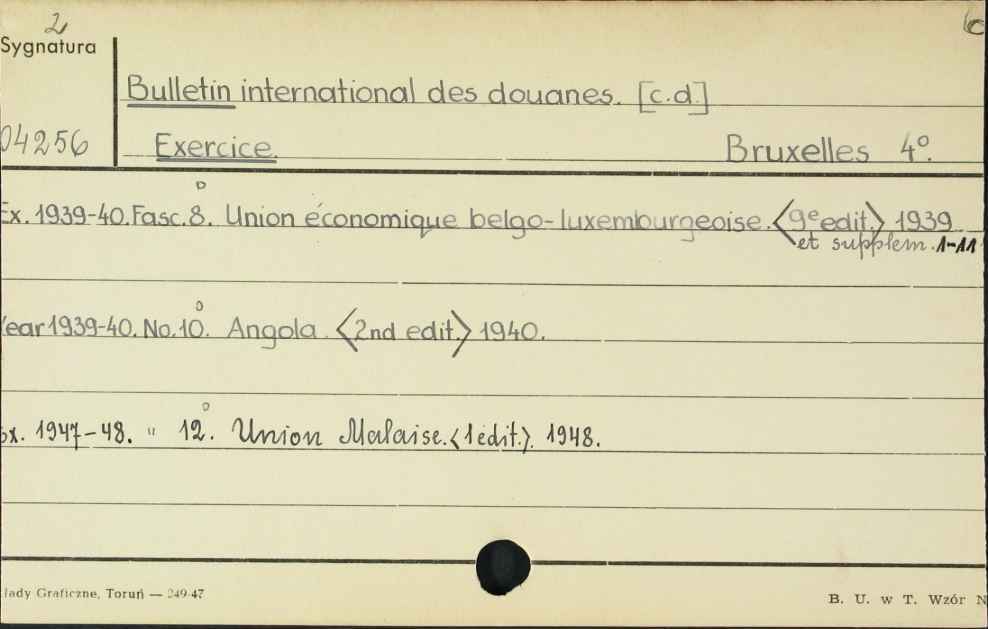 2
6
Sygnatura
Bulletin international des douanes. [c.d.]
04256 Exercice. Bruxelles 4º.
Ex. 1939-40. Fasc. 8. Union économique belgo-luxemburgeoise. <9e edit.> 1939
et supplem. 1-11
Year 1939-40. No. 10. Angola. <2nd edit.> 1940.
Ex. 1947-48. " 12. Union Malaise. <1 édit.>. 1948.
łady Graficzne, Toruń — 249-47
B. U. w T. Wzór N